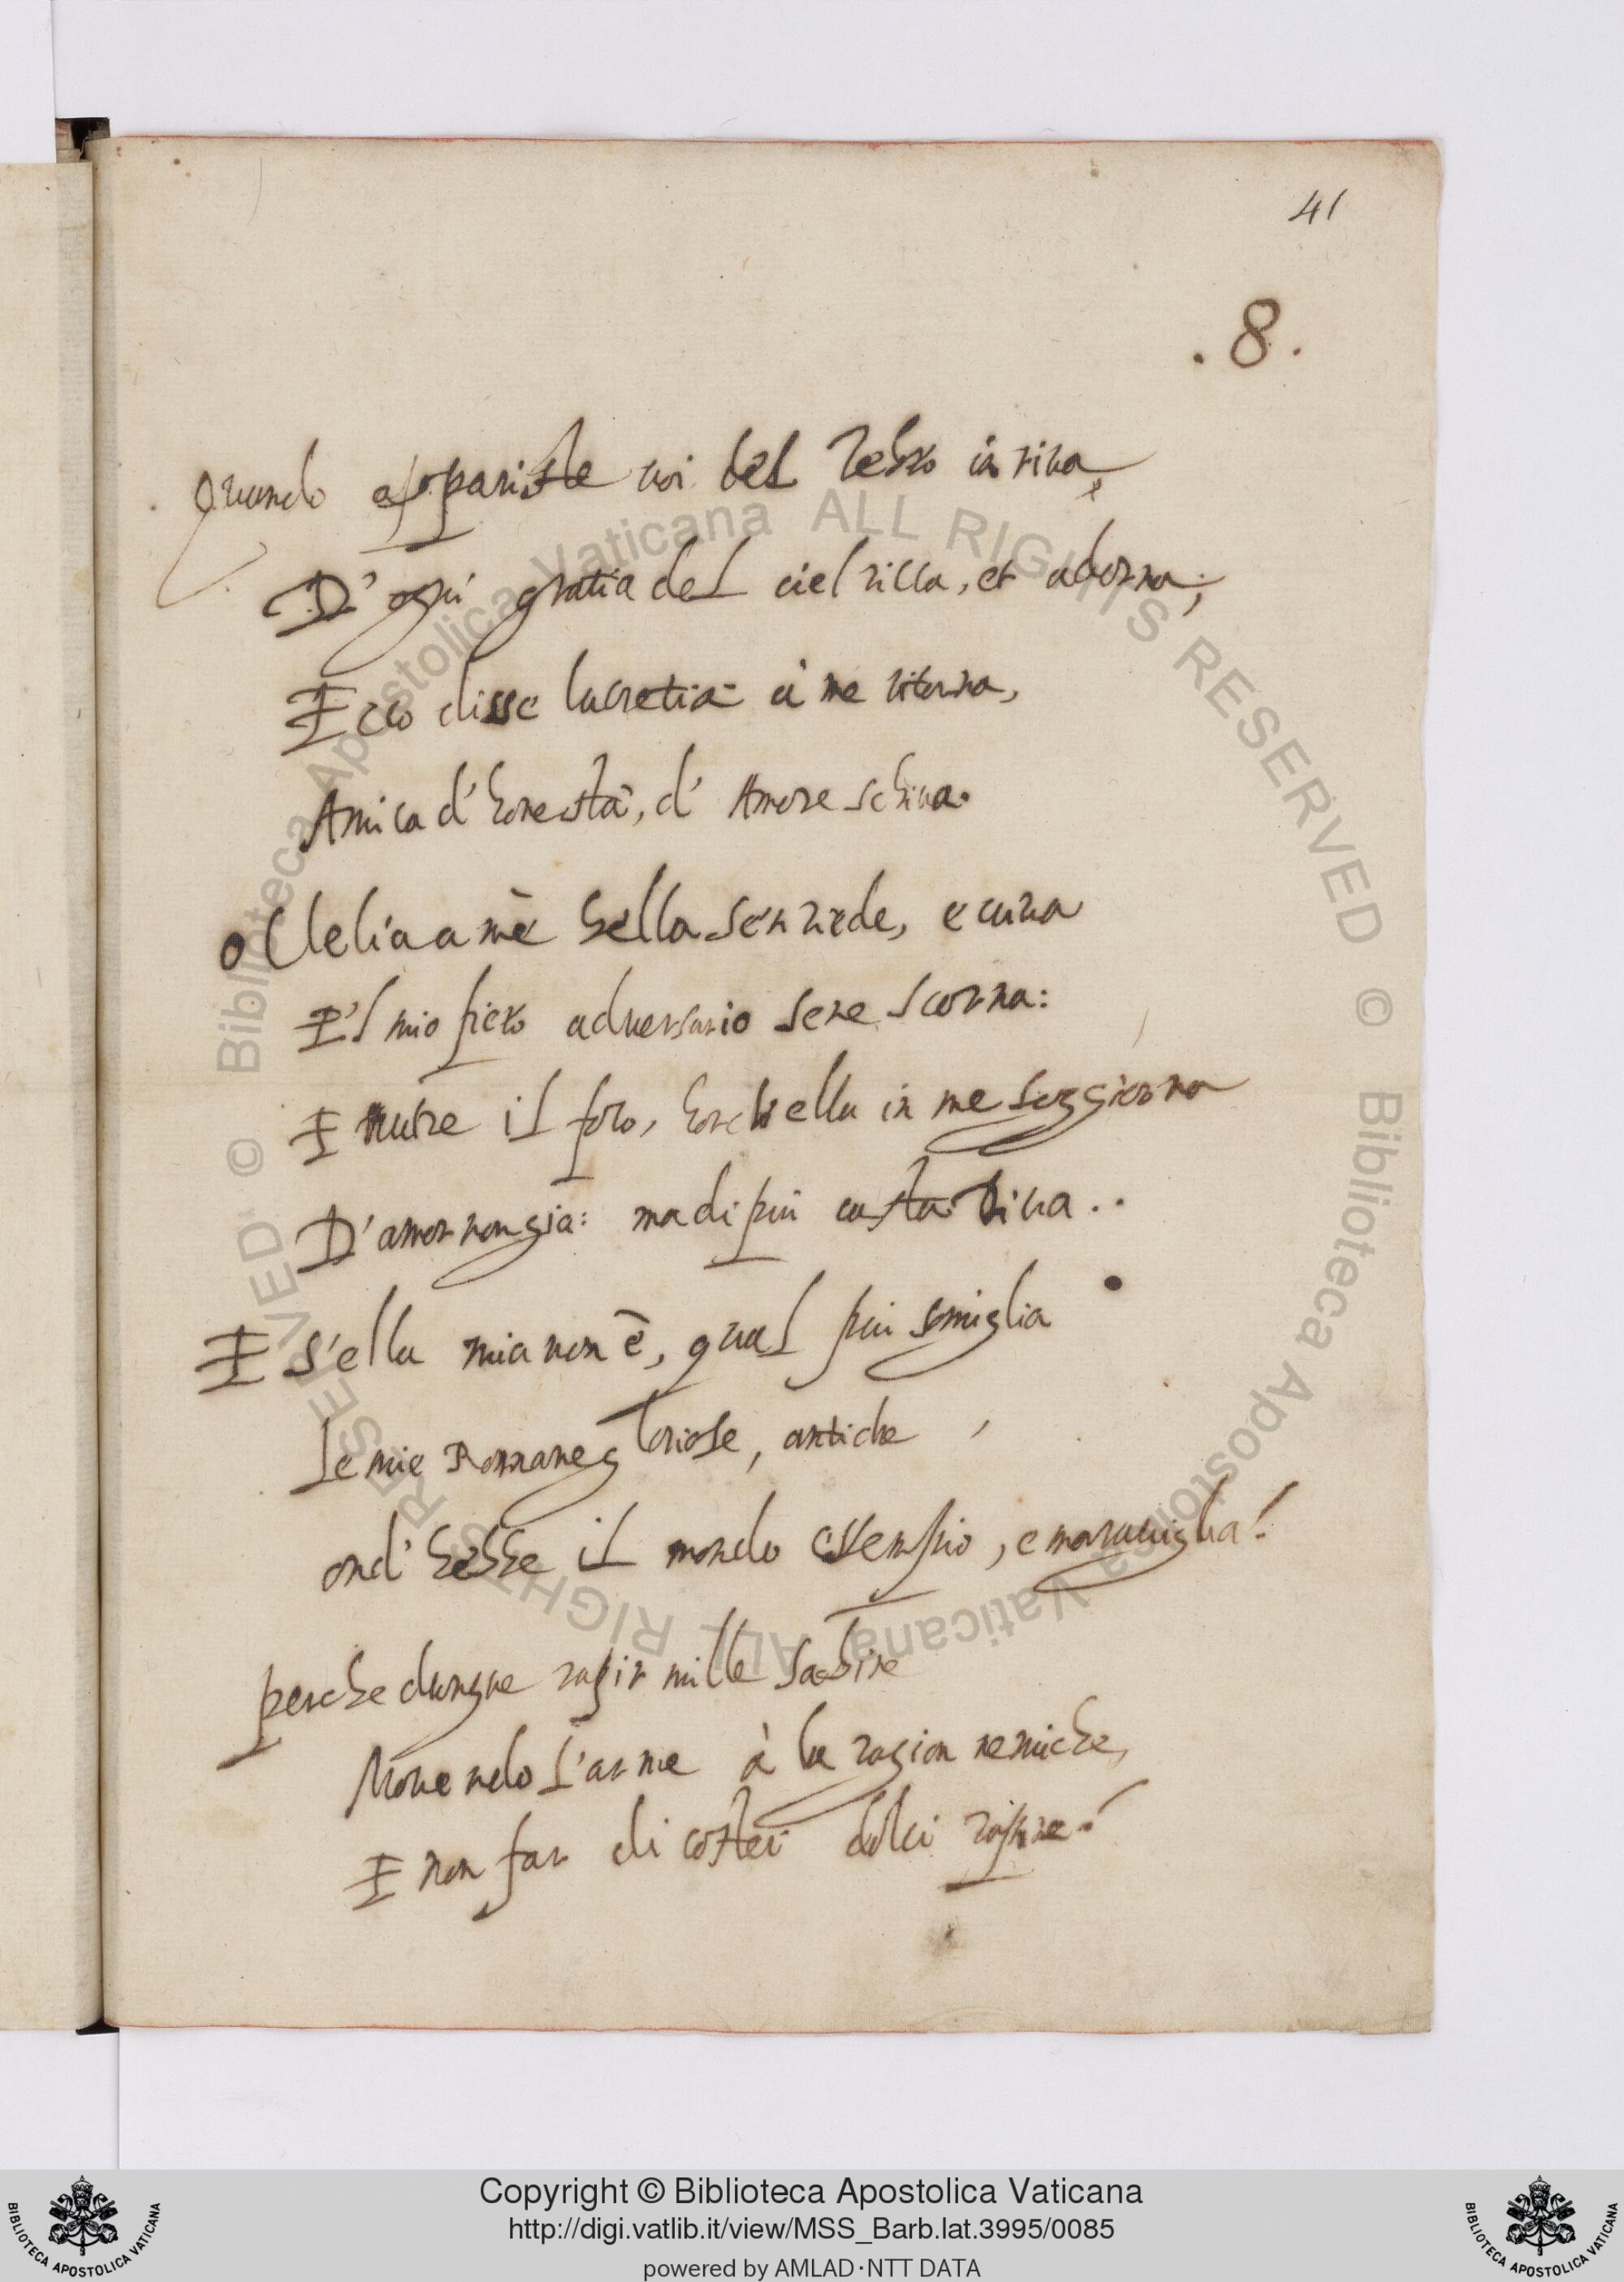 41
.8.
Quando appariste voi del Tebro in riva,
D'ogni gratia del ciel ricca, et adorna;
Ecco disse lucretia à me ritorna,
Amica d'honestà, d'Amore schiva.
o Clelia a me bella sen riede, e viva
E'l mio fiero adversario sene scorna:
E nutre il foco, horch'ella in me soggiorna
D'amor non gia: ma di piu casta Diva..
E s'ella mia non è, qual piu somiglia
le mie Romane gloriose, antiche
ond' hebbe il mondo essempio, e maraviglia!
perche dunque rapir mille Sabine
Movendo l'arme à la ragion nemiche,
E non far di costei dolci rapine!
© Biblioteca Apostolica Vaticana ALL RIGHTS RESERVED © Biblioteca Apostolica Vaticana ALL RIGHTS RESERVED
Copyright © Biblioteca Apostolica Vaticana
http://digi.vatlib.it/view/MSS_Barb.lat.3995/0085
powered by AMLAD·NTT DATA
BIBLIOTECA APOSTOLICA VATICANA
BIBLIOTECA APOSTOLICA VATICANA